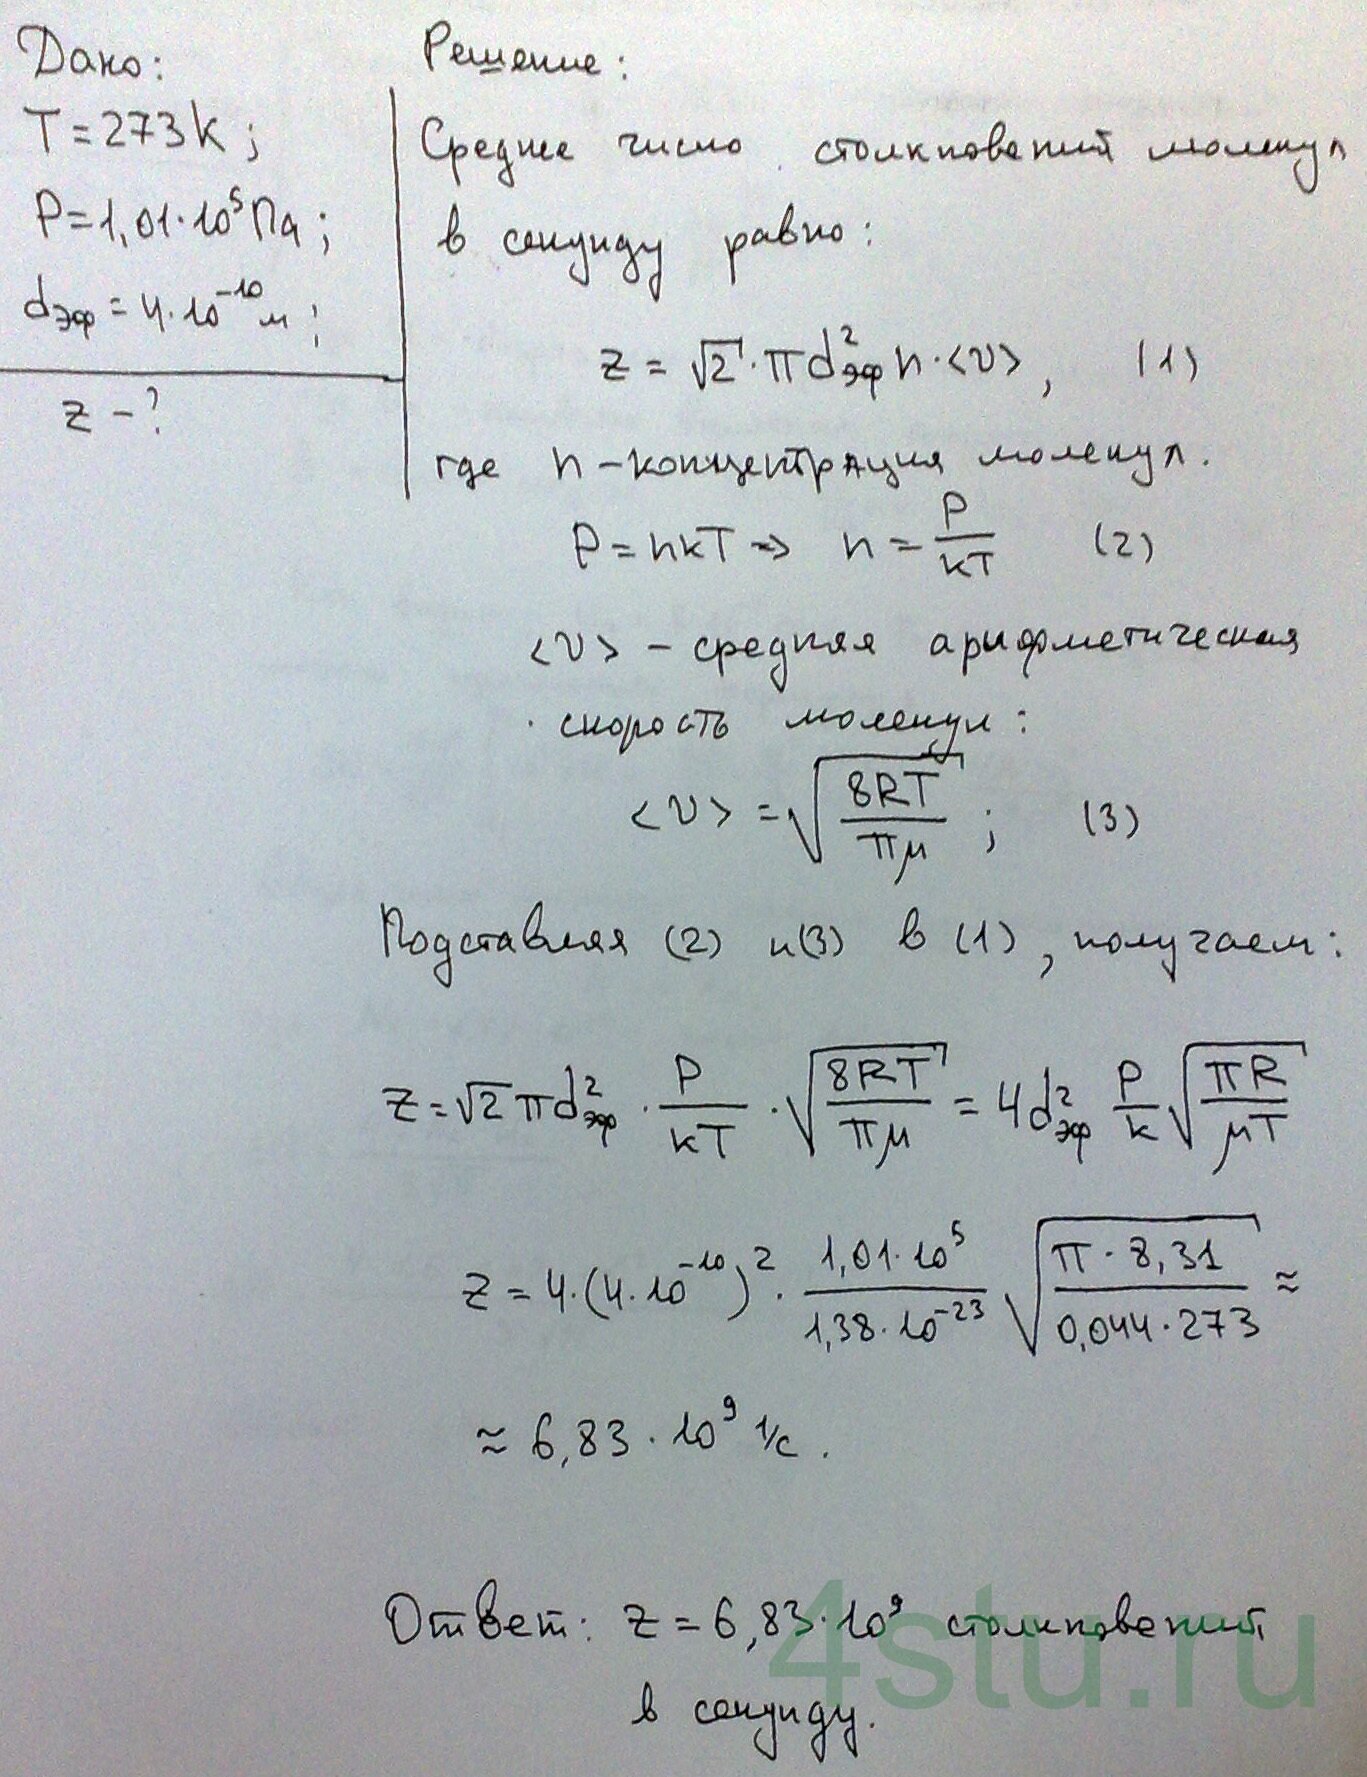 Дано:
T = 273 k;
P = 1,01·10⁵ Па;
dэф = 4·10⁻¹⁰ м;
z – ?
Решение:
Среднее число столкновений молекул
в секунду равно:
z = √2·πd²эф n·<v>, (1)
где n – концентрация молекул.
P = nkT => n = P/kT (2)
<v> – средняя арифметическая
скорость молекул:
<v> = √(8RT/πμ); (3)
Подставляя (2) и (3) в (1), получаем:
z = √2 πd²эф · P/kT · √(8RT/πμ) = 4d²эф P/k √(πR/μT)
z = 4·(4·10⁻¹⁰)² · 1,01·10⁵/1,38·10⁻²³ √(π·8,31/0,044·273) ≈
≈ 6,83·10⁹ 1/с.
Ответ: z = 6,83·10⁹ столкновений
в секунду.
4stu.ru